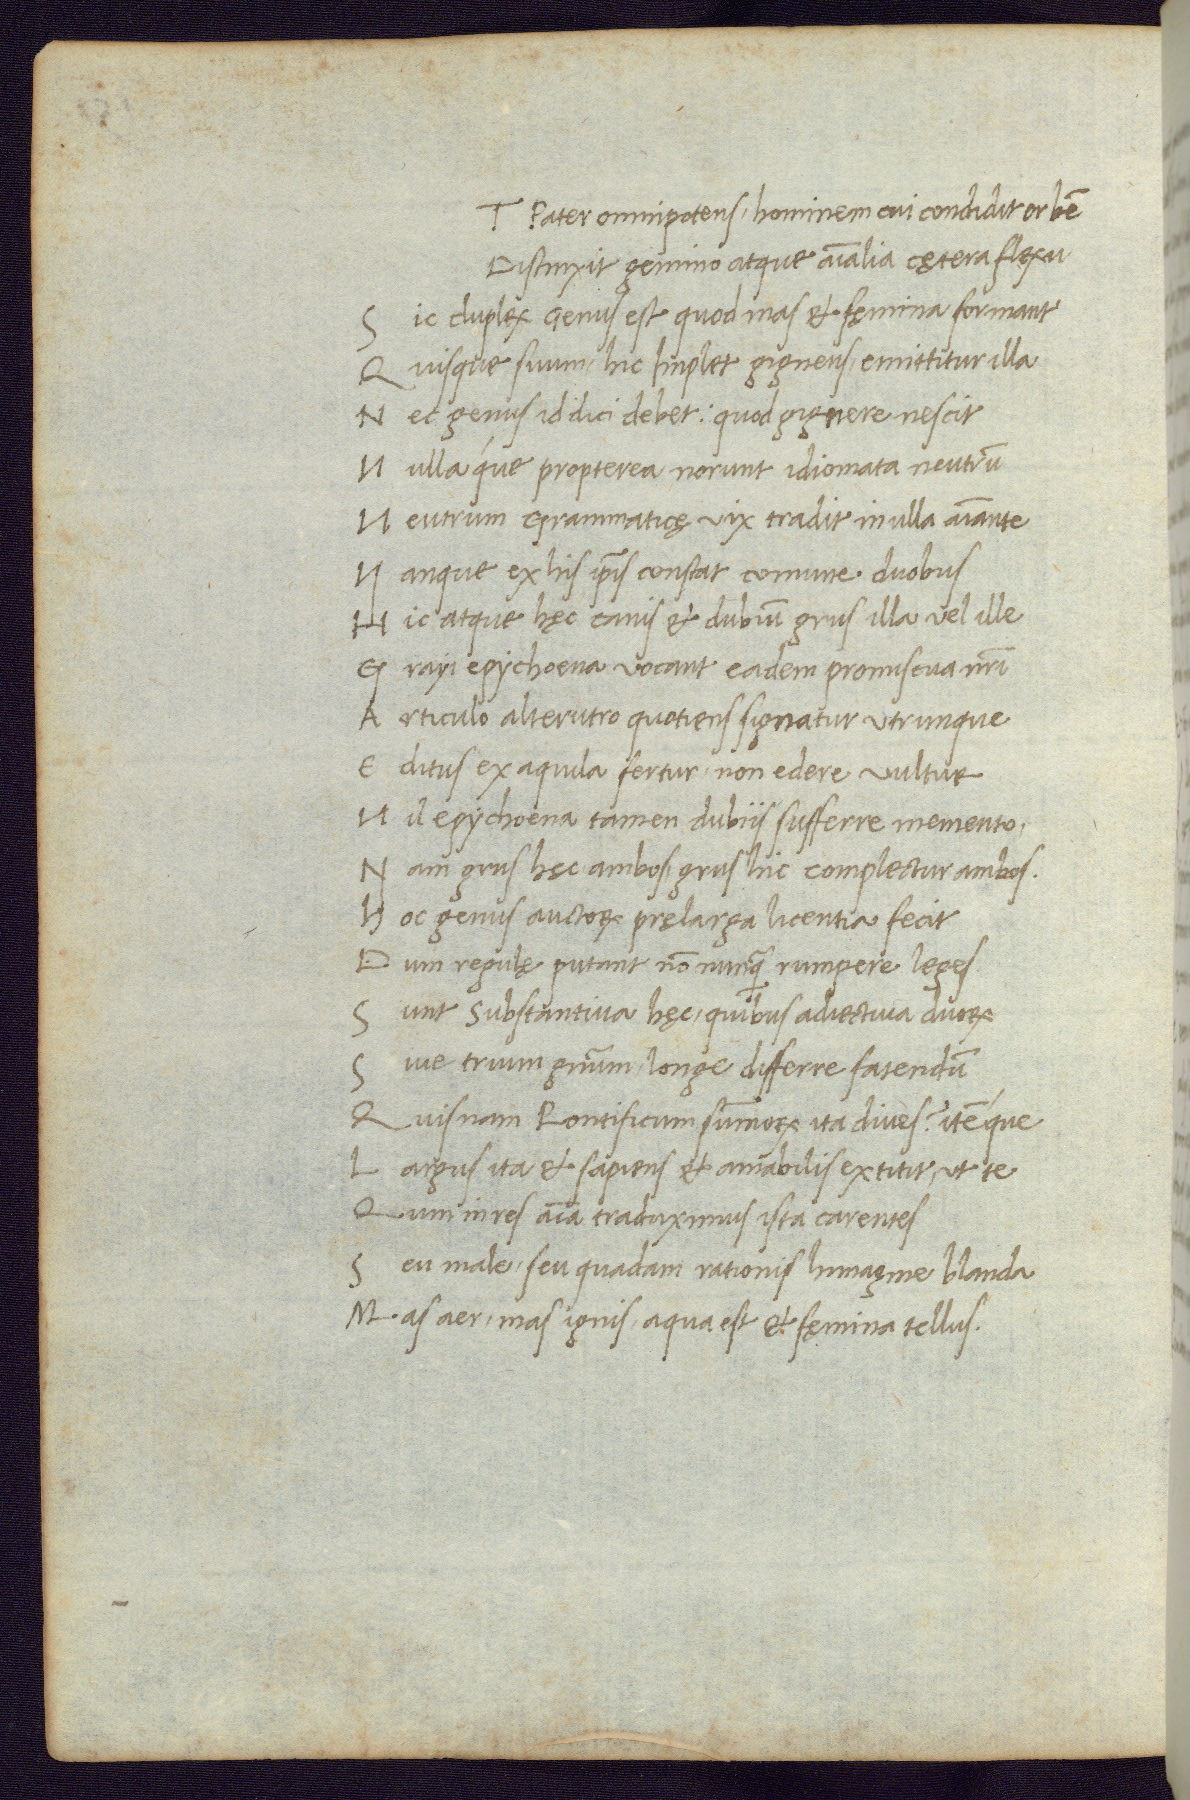 T Pater omnipotens, hominem cui condidit orbē
Distinxit gemino atque aīalia cętera flexu
Sic duplex Genus est quod mas et fęmina formant
Quisque suum, hic Implet gignens, emittitur illa
Nec genus id dici debet: quod gignere nescit
Nullaq́ue propterea norunt idiomata neutrū
Neutrum Grammaticę vix tradit in ulla aīante
Nanque ex his ip̄is constat comune duobus
Hic atque hęc canis et dubiū grus illa vel ille
Grayi epychoena vocant eadem promiscua nr̄i
Articulo alterutro quotiens signatur utrunque
Editus ex aquila fertur, non edere vultur
Nil epychoena tamen dubiis sufferre memento,
Nam grus hęc ambos, grus hic complectur ambos.
Hoc genus auctoꝝ prelarga licentia fecit
Dum regulę putant nō nunqꝫ rumpere leges
Sunt Substantiva hęc, quibus adiectiva duoꝝ
Sive trium gn̄um, longe differre fatendū
Quisnam Pontificum sūmoꝝ ita dives? itēq́ue
Largus ita et sapiens et amabilis extitit, ut te
Qum in res aīa traduximus ista carentes
Seu male, seu quadam rationis himagine blanda
Mas aer, mas ignis, aqua est et fęmina tellus.